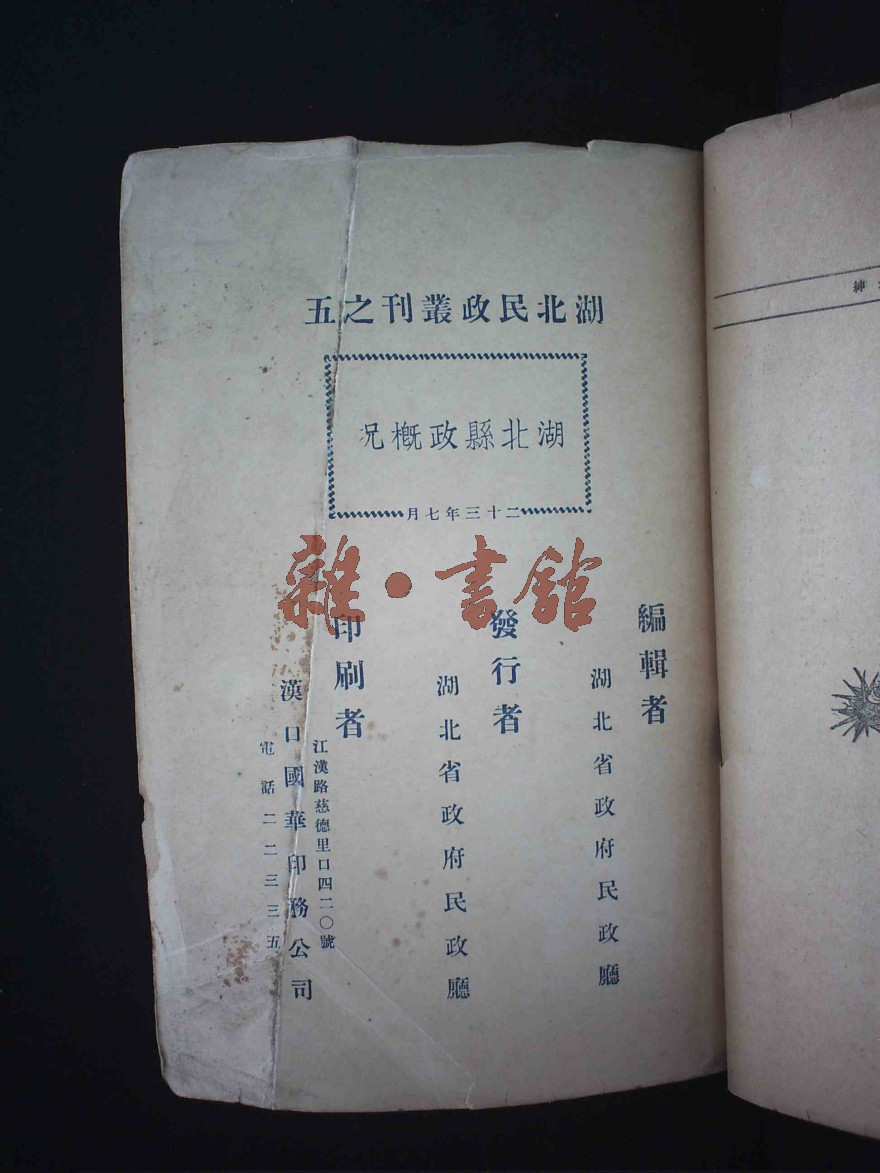 湖北民政叢刊之五
湖北縣政概况
二十三年七月
編輯者
湖北省政府民政廳
發行者
湖北省政府民政廳
印刷者
江漢路慈德里口四二〇號
漢口國華印務公司
電話二二三三五
雜·書館
紳